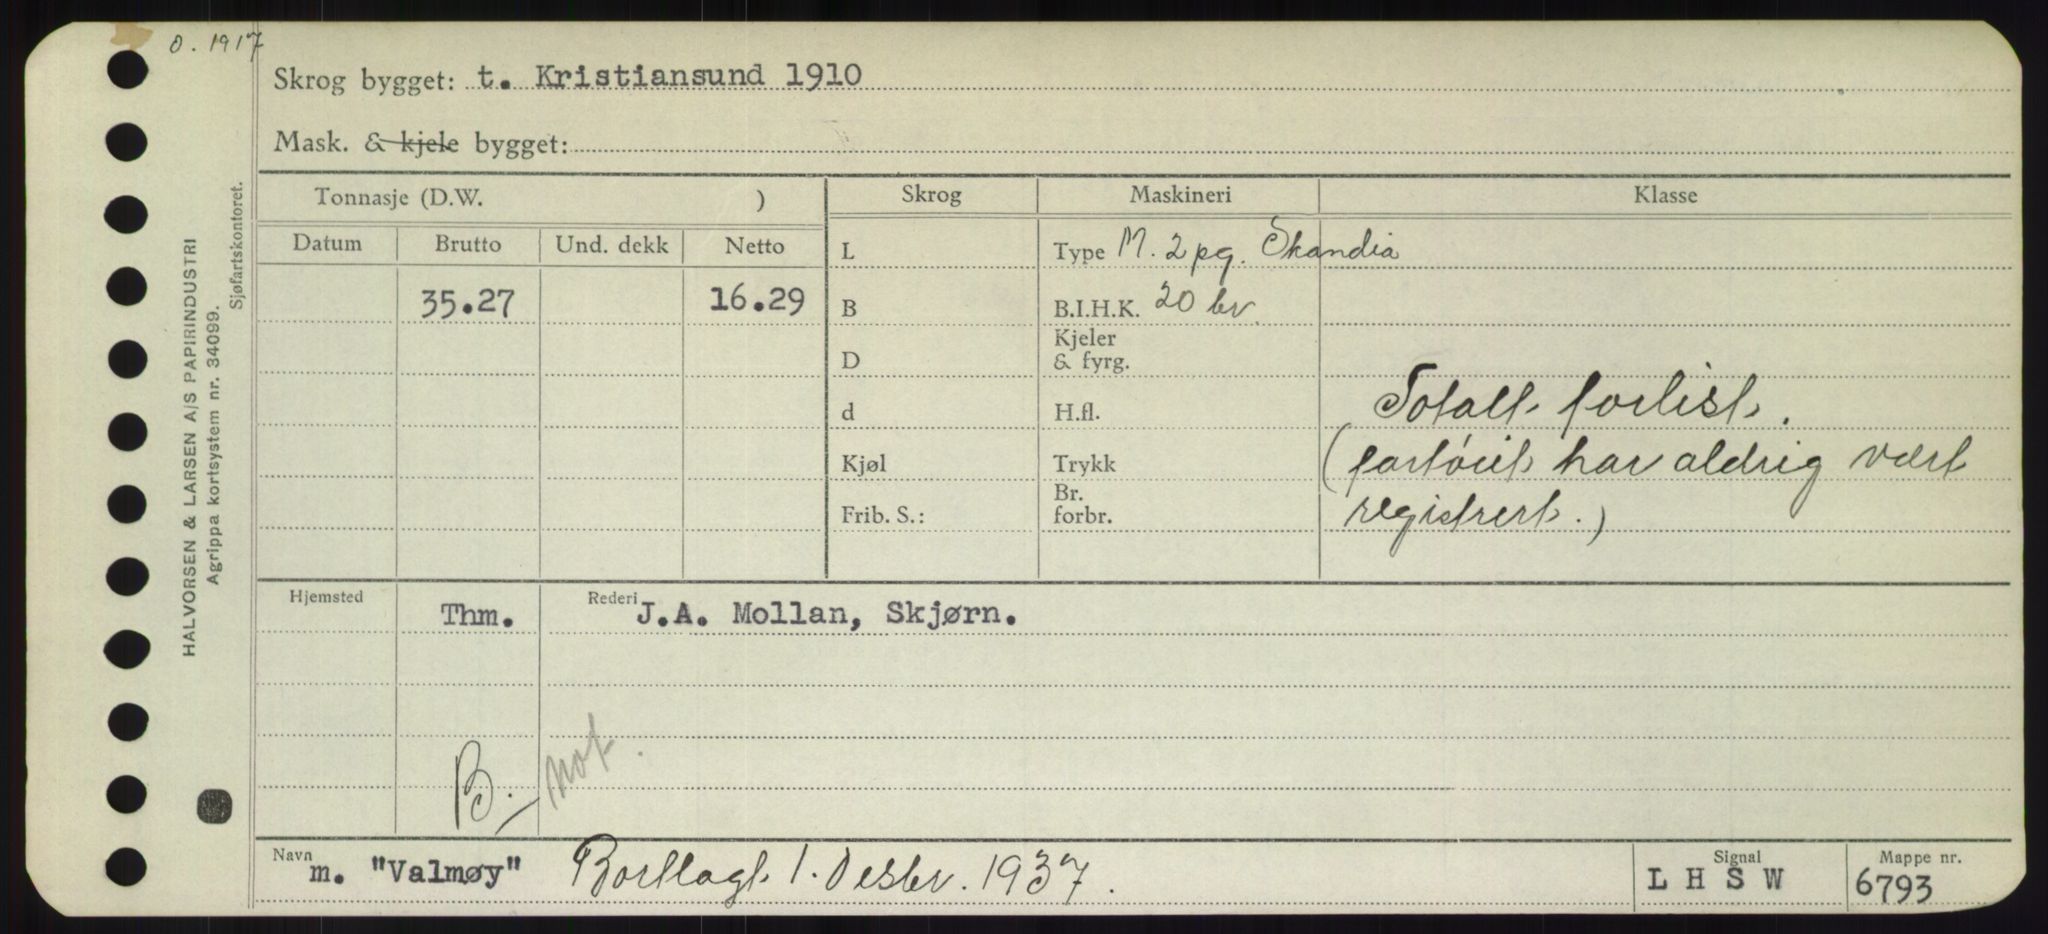 O. 1917
Skrog bygget: t. Kristiansund 1910
Mask. & kjele bygget:
Tonnasje (D.W. )
Skrog
Maskineri
Klasse
Datum
Brutto
Und. dekk
Netto
L
Type M. 2 pg. Skandia
35.27
16.29
B
B.I.H.K. 20 br.
D
Kjeler
& fyrg.
d
H.fl.
Totalt forlist.
Kjøl
Trykk
(fartöiet har aldrig vært
Frib. S.:
Br.
forbr.
registrert.)
Hjemsted
Thm.
Rederi
J.A. Mollan, Skjørn.
B.
not.
Navn
m. "Valmøy"
Bortlagt 1. Desbr. 1937.
Signal
L H S W
Mappe nr.
6793
HALVORSEN & LARSEN A/S PAPIRINDUSTRI
Agrippa kortsystem nr. 34099.
Sjøfartskontoret.